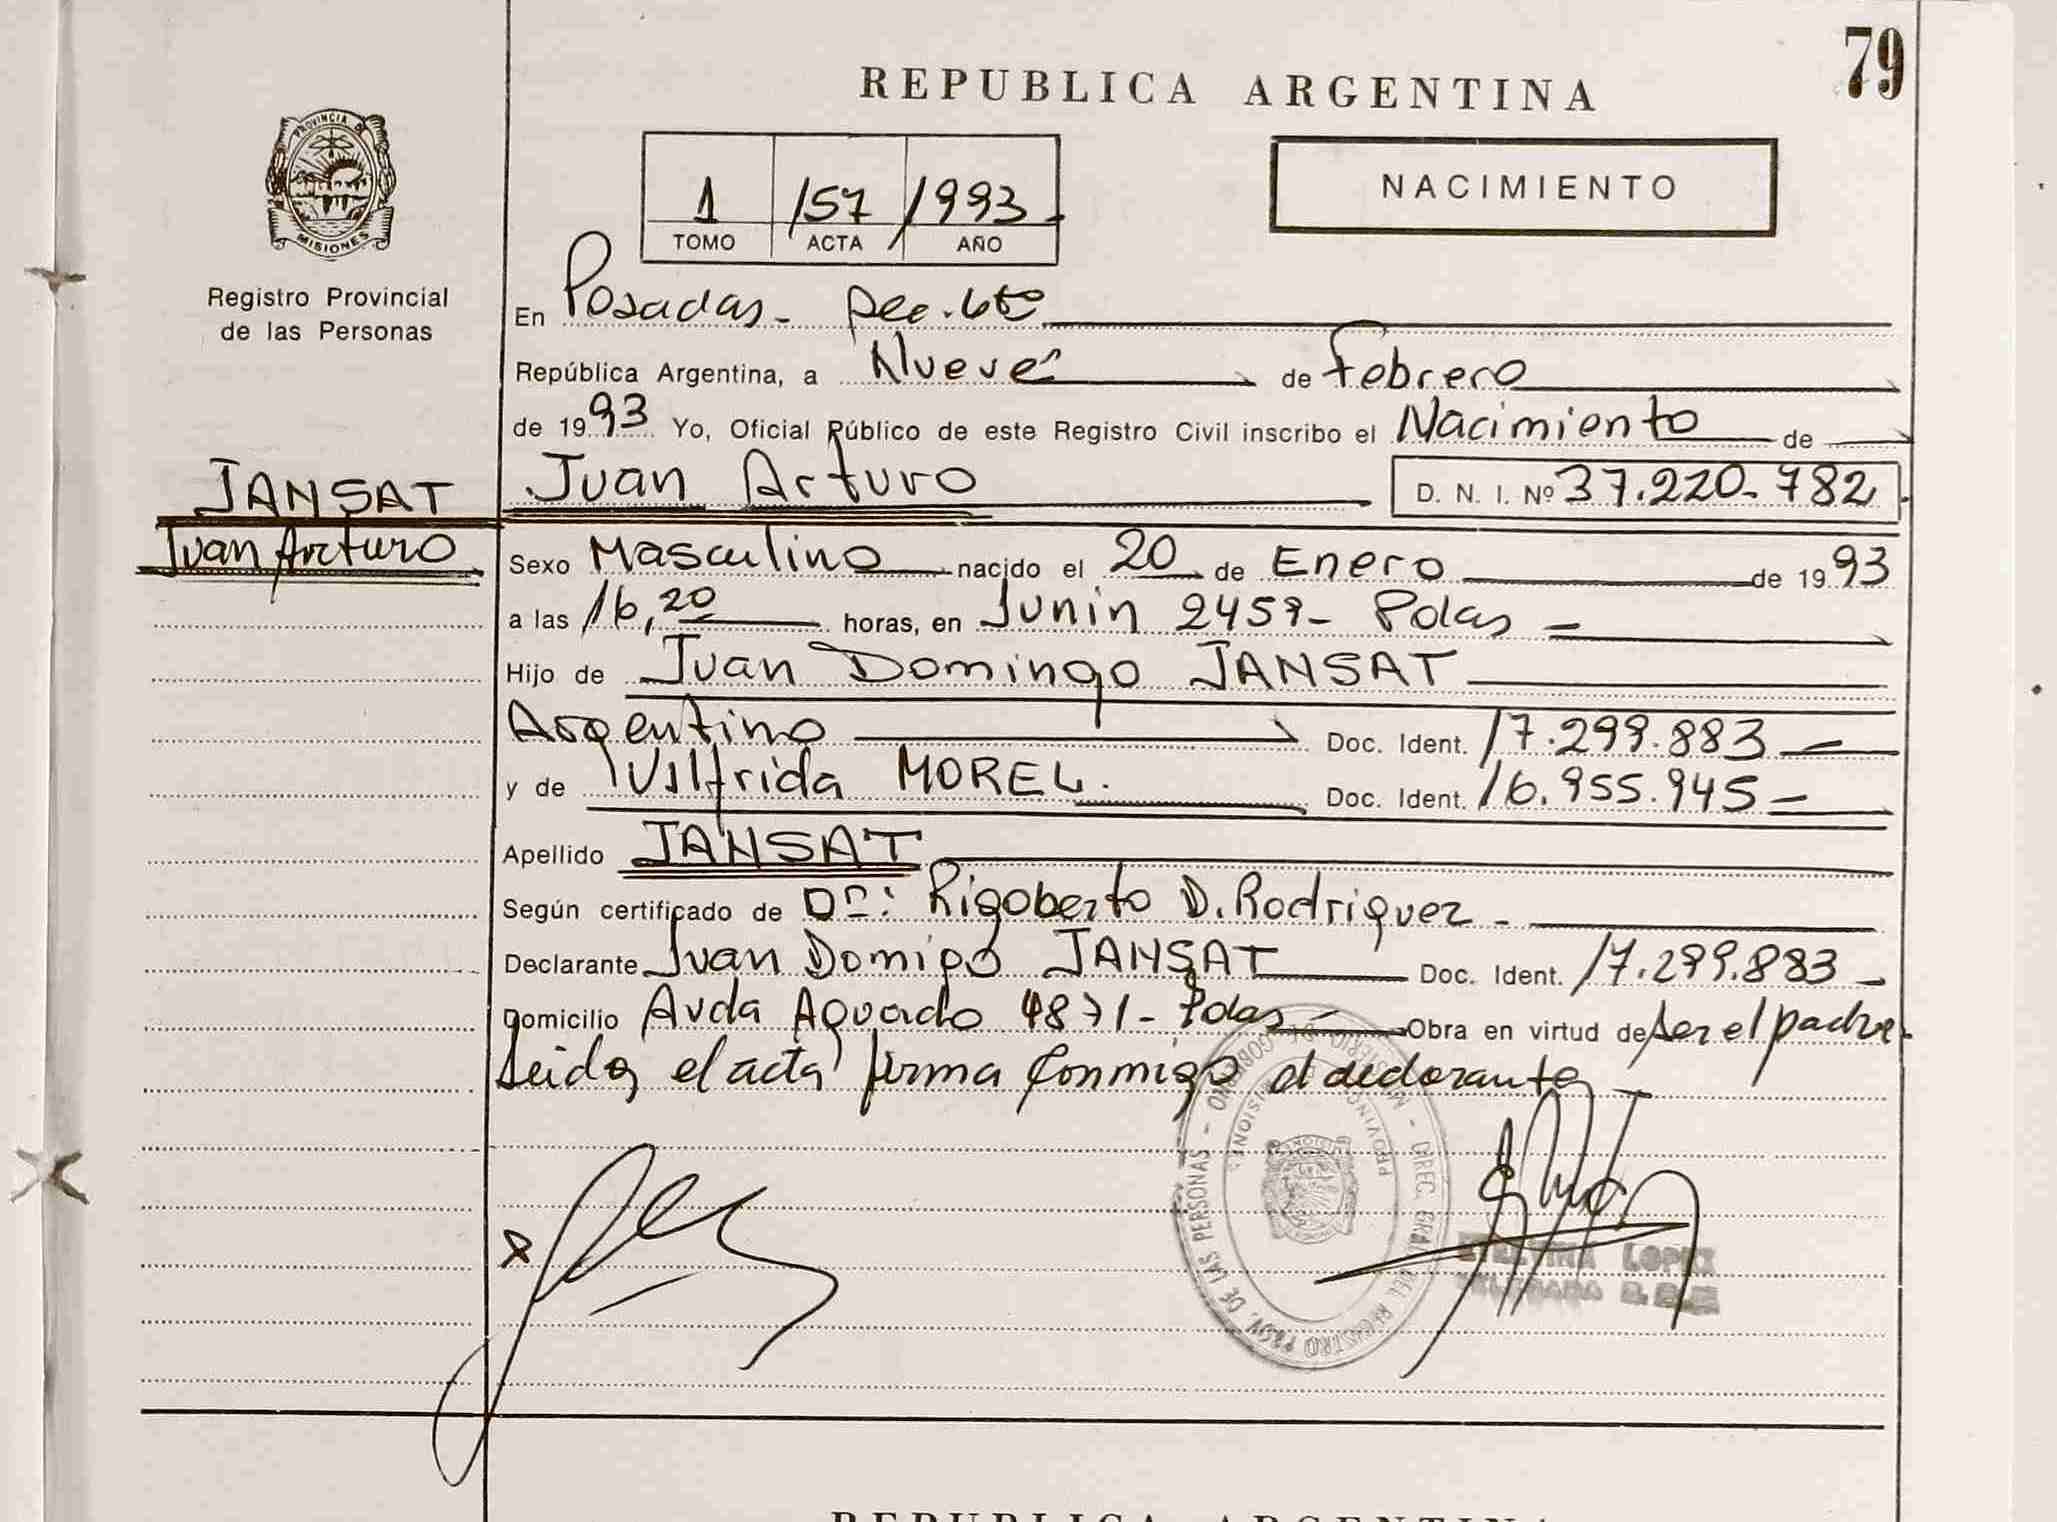 79
REPUBLICA ARGENTINA
PROVINCIA DE
MISIONES
Registro Provincial
de las Personas
1 157 1993
TOMO ACTA AÑO
NACIMIENTO
En Posadas-
República Argentina, a Nueve de Febrero
de 1993 Yo, Oficial Público de este Registro Civil inscribo el Nacimiento de
JANSAT
Juan Arturo
Juan Arturo D. N. I. Nº 37.220.782
Sexo Masculino nacido el 20 de Enero de 1993
a las 16,20 horas, en Junin 2459- Pdas
Hijo de Juan Domingo JANSAT
Argentino Doc. Ident. 17.299.883
y de Wilfrida MOREL. Doc. Ident. 16.955.945
Apellido JANSAT
Según certificado de Dr: Rigoberto D. Rodriguez
Declarante Juan Domigo JANSAT Doc. Ident. 17.299.883
Domicilio Avda Aguado 4871- Pdas Obra en virtud de ser el padre
Leida el acta firma conmigo el declarante
DIREC. GRAL DEL REGISTRO PROV. DE LAS PERSONAS - MINISTERIO DE GOBIERNO
PROVINCIA MISIONES
LOPEZ
REPUBLICA ARGENTINA